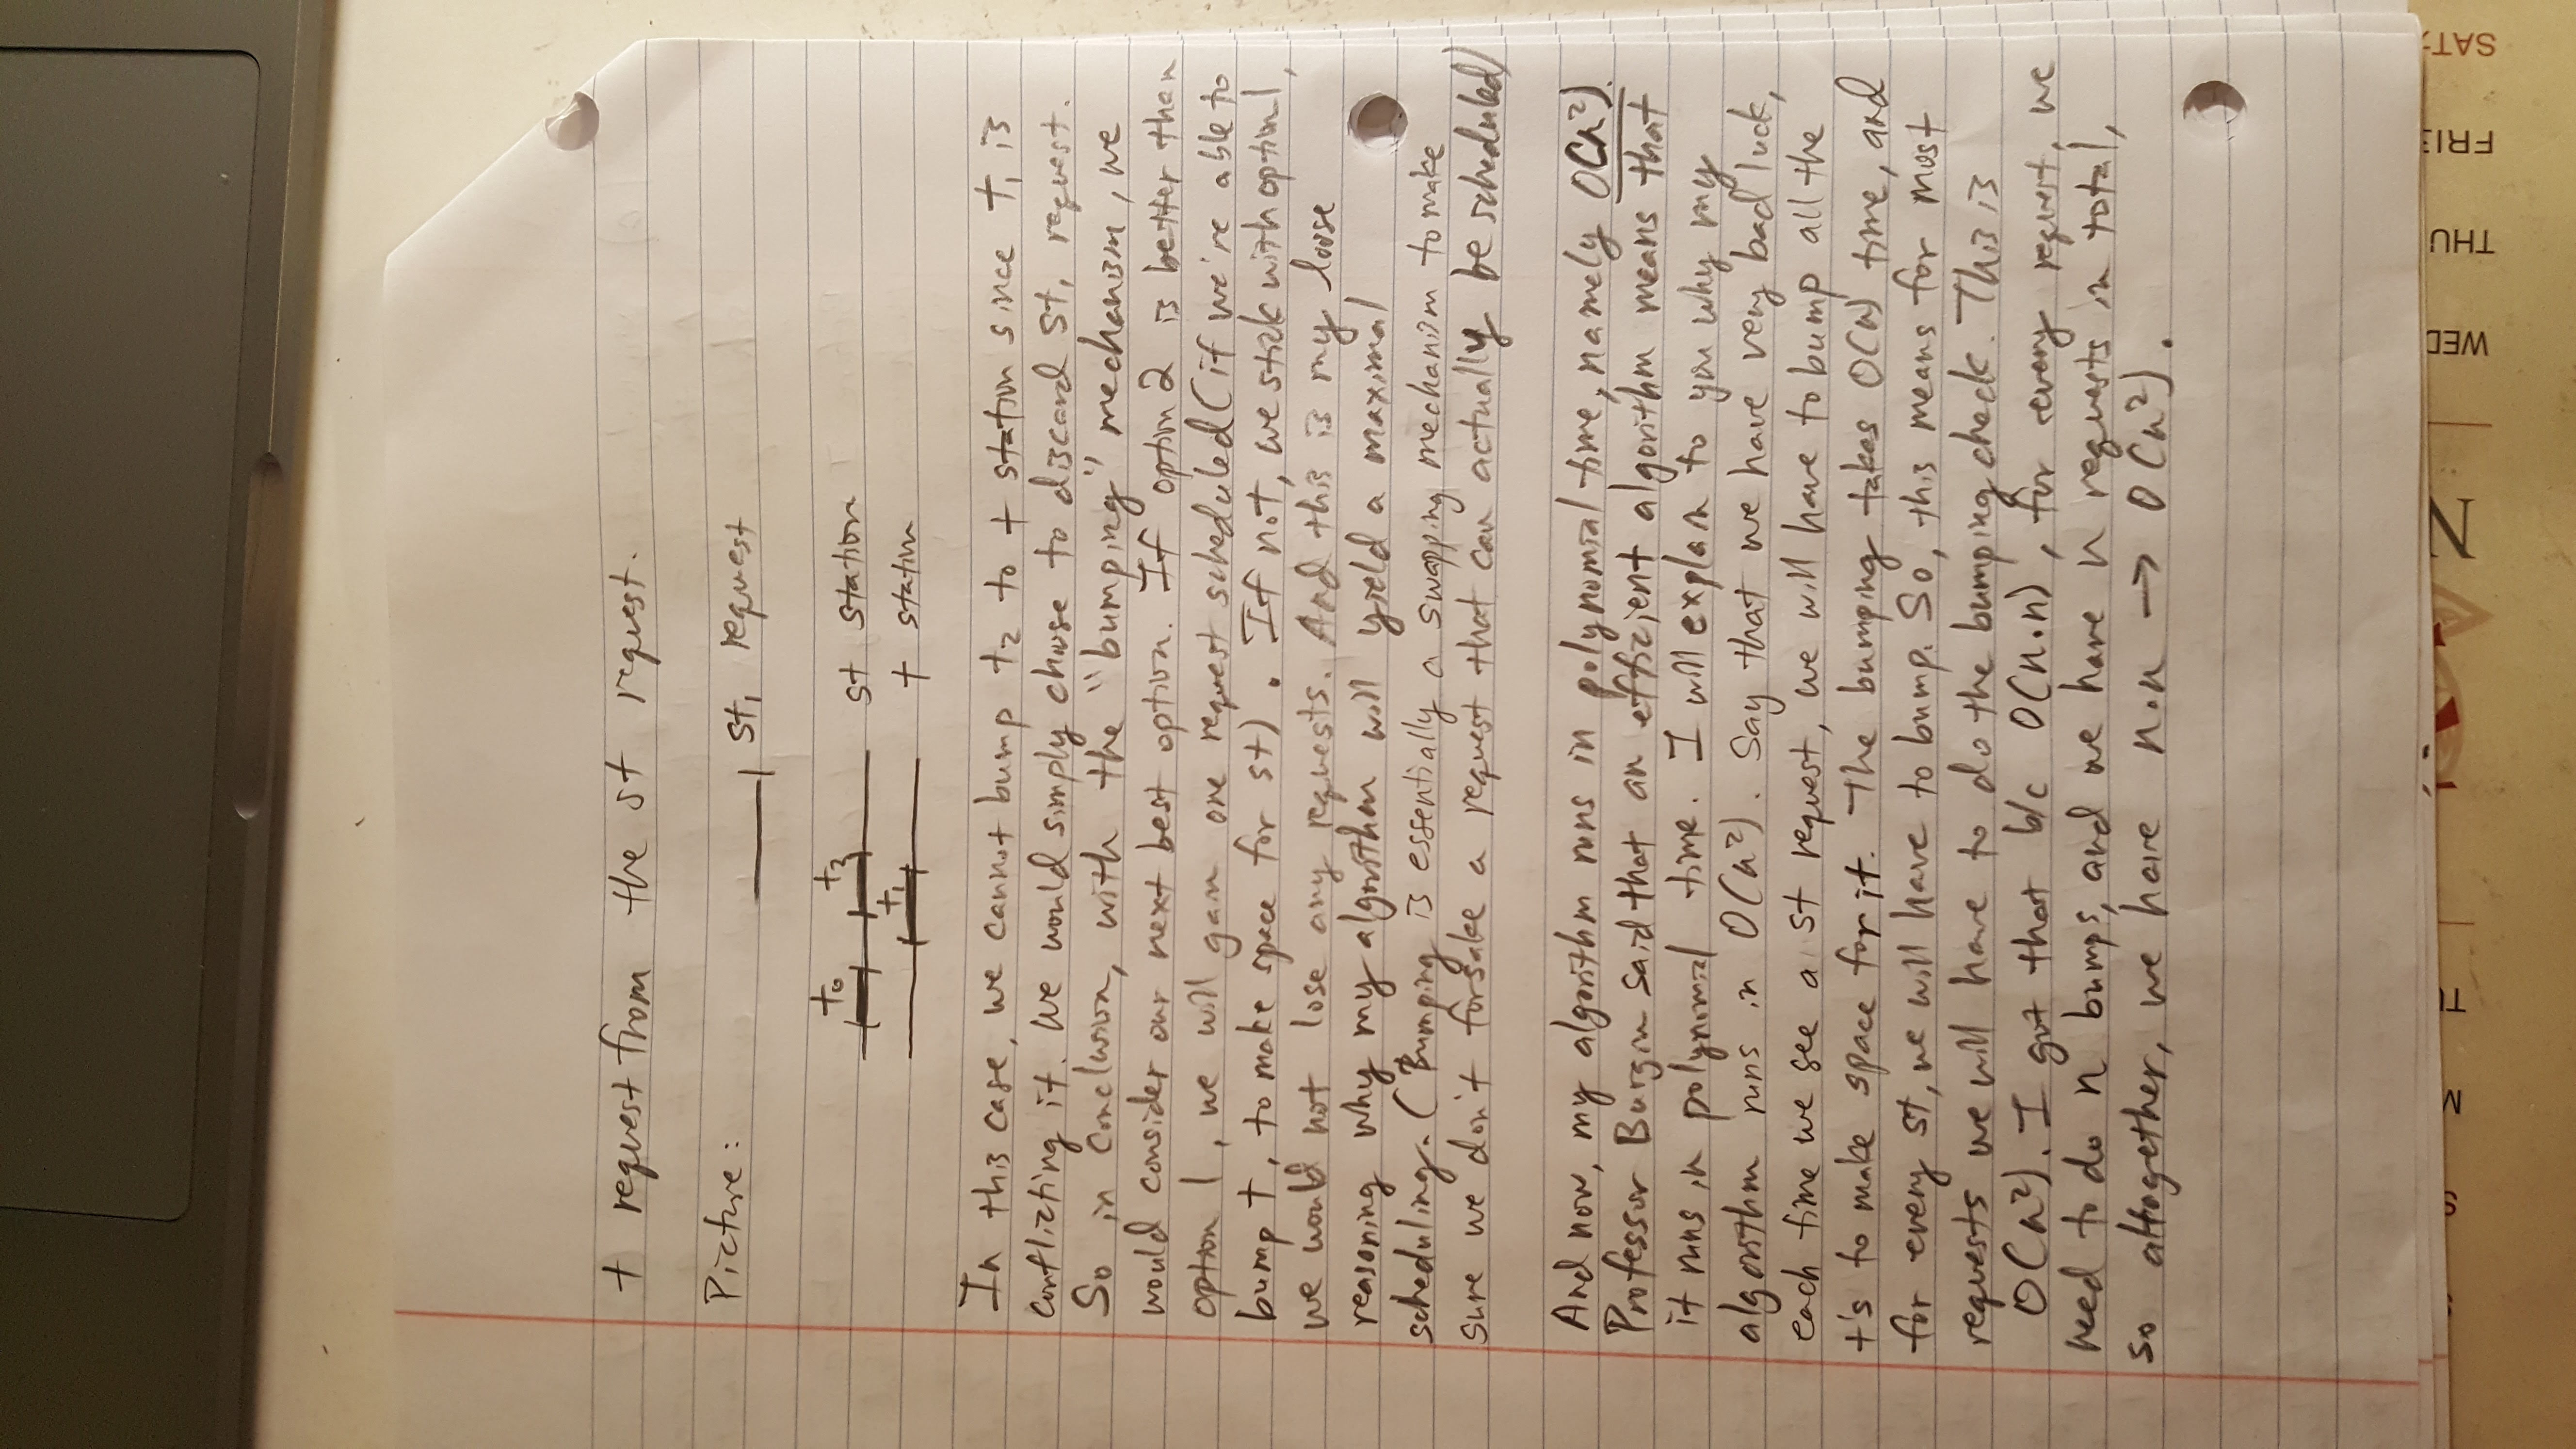 t request from the st request.
Picture:
st₁ request
t₀ t₂
st station
t₁
t station
In this case, we cannot bump t₂ to t station since t₁ is
conflicting it. We would simply choose to discard st₁ request.
So in conclusion, with the "bumping" mechanism, we
would consider our next best option. If option 2 is better than
option 1, we will gain one request scheduled (if we're able to
bump t, to make space for st). If not, we stick with option 1,
we would not lose any requests. And this is my loose
reasoning why my algorithm will yield a maximal
scheduling. (Bumping is essentially a swapping mechanism to make
sure we don't forsake a request that can actually be scheduled)
And now, my algorithm runs in polynomial time, namely O(n²).
Professor Burgin said that an efficient algorithm means that
it runs in polynomial time. I will explain to you why my
algorithm runs in O(n²). Say that we have very bad luck,
each time we see a st request, we will have to bump all the
t's to make space for it. The bumping takes O(n) time, and
for every st, we will have to bump. So, this means for most
requests we will have to do the bumping check. This is
O(n²). I got that b/c O(n·n), for every request, we
need to do n bumps, and we have n requests in total,
so altogether, we have n·n → O(n²).
N
WED
THU
FRI
SAT